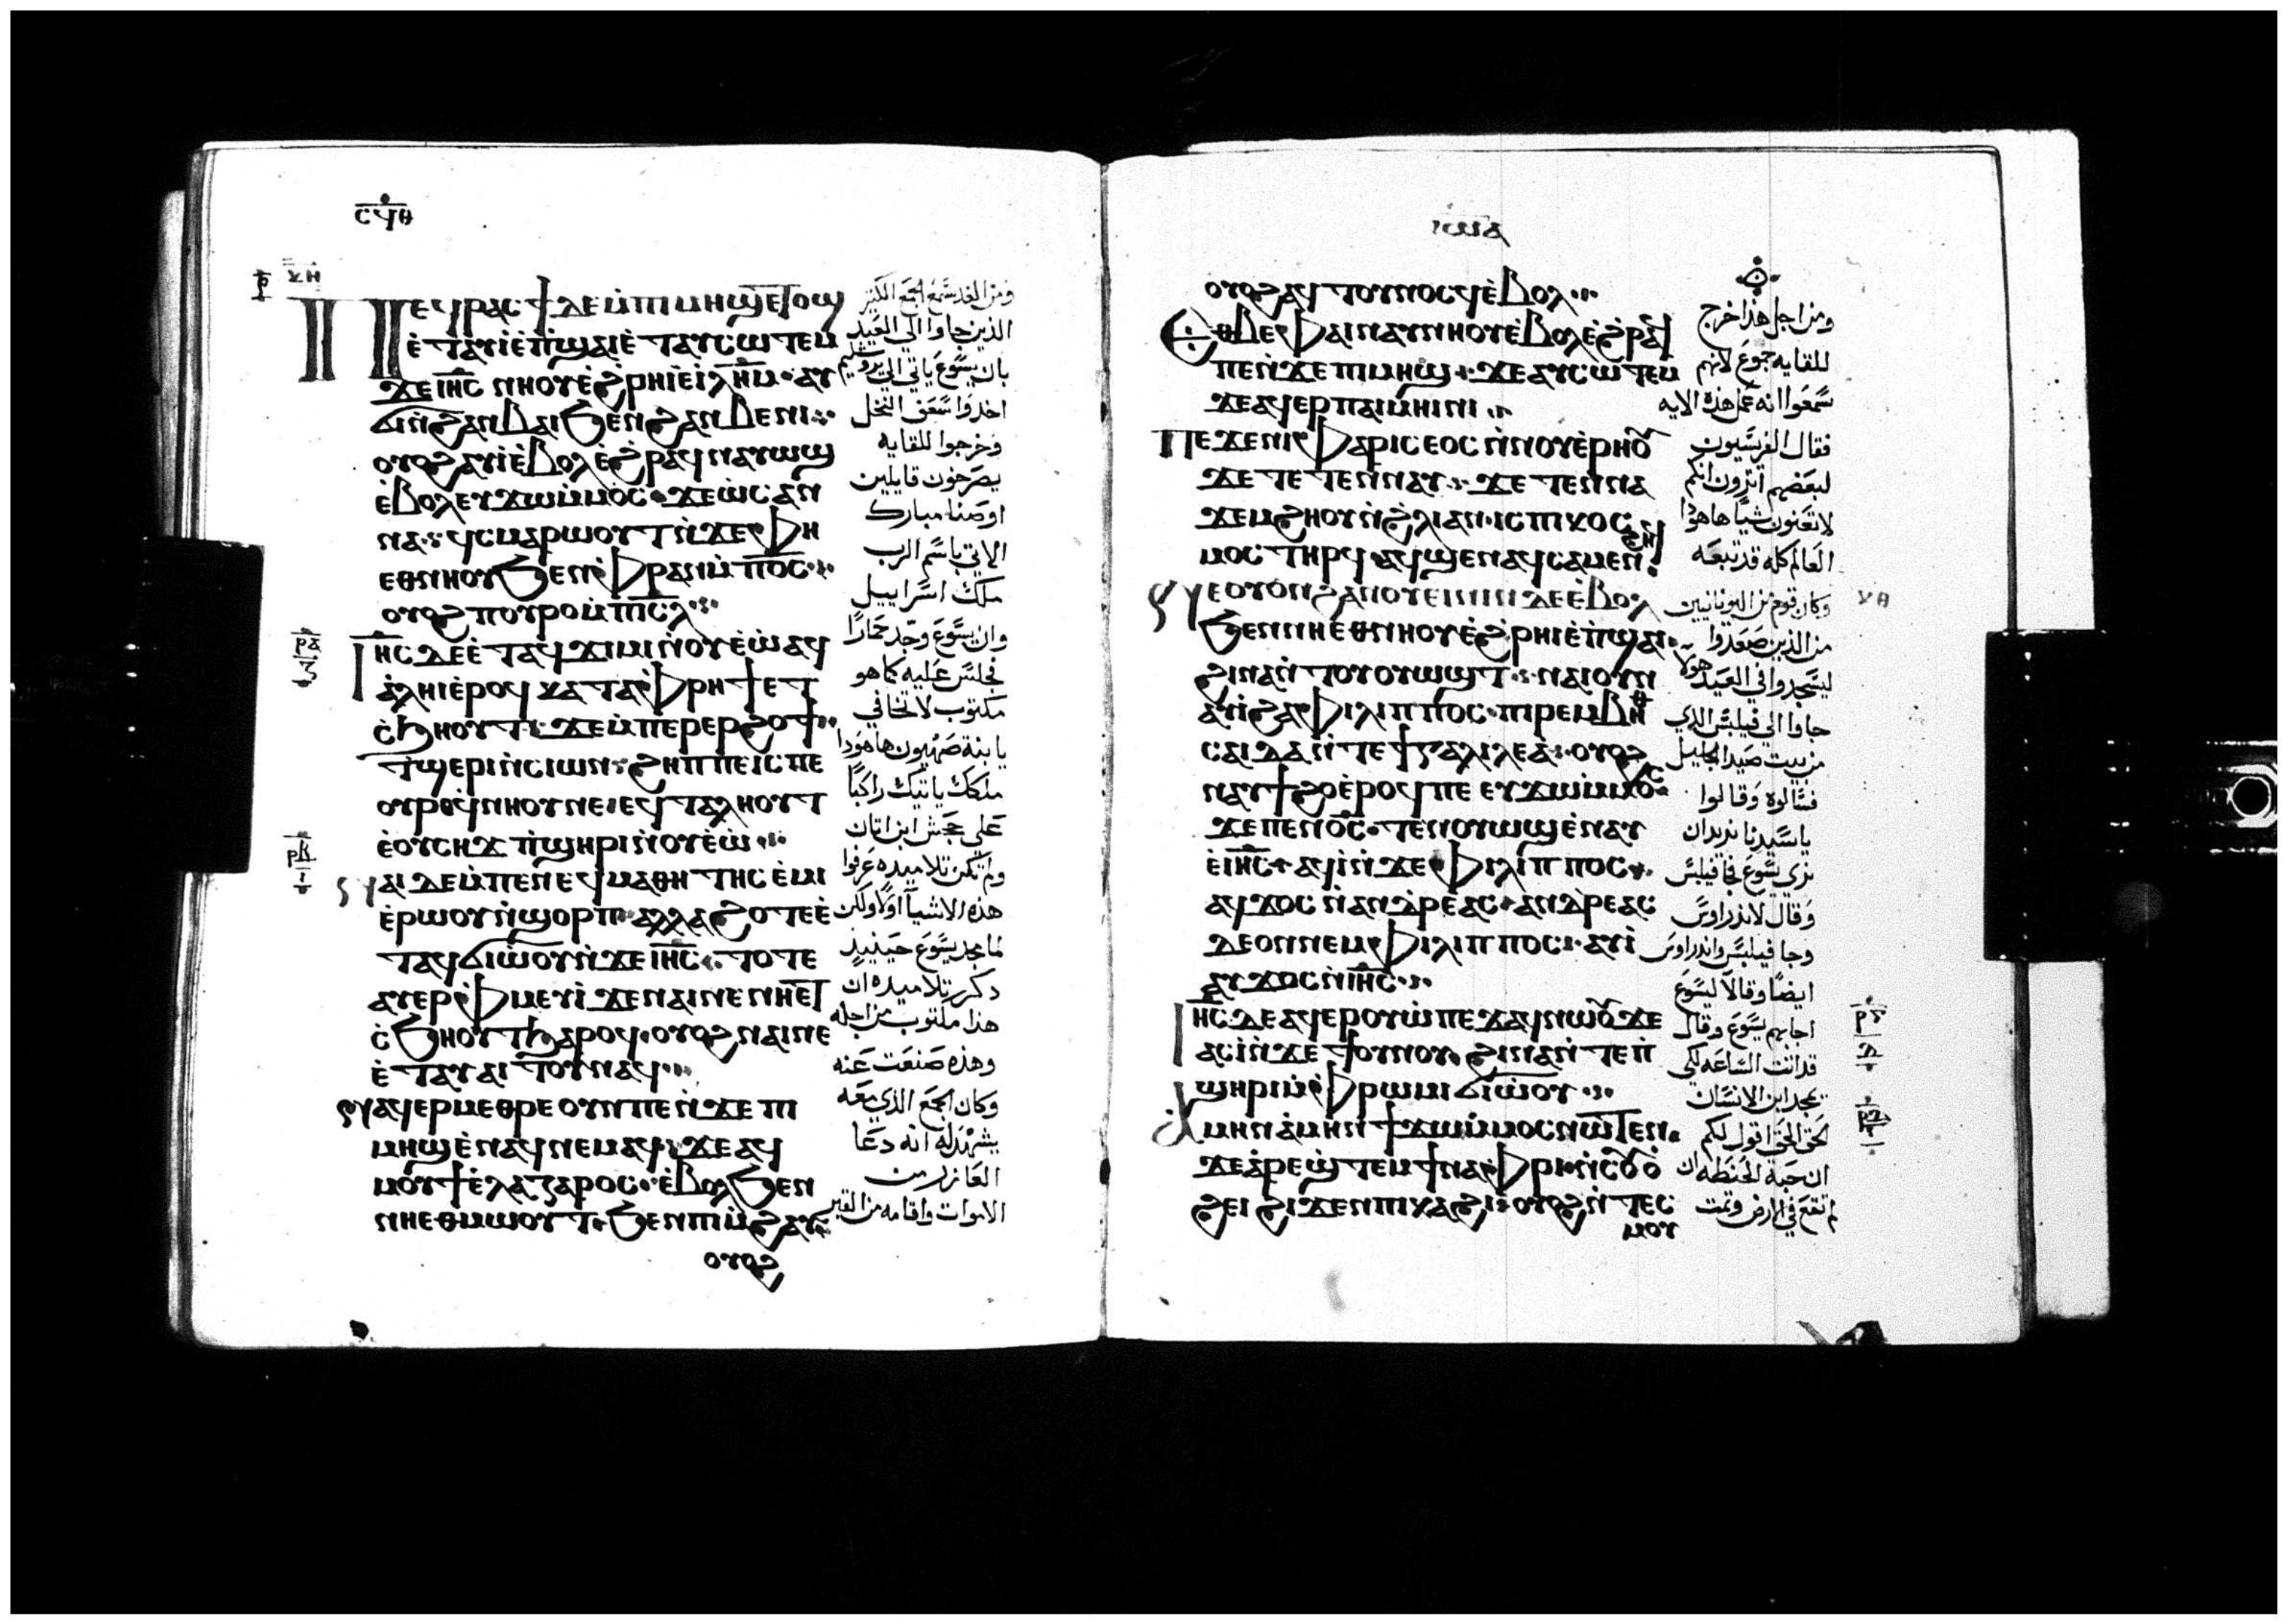 ⲥϥⲑ
ⲣ ⲕⲏ
ⲠⲈϥⲣⲁⲥϯ ⲇⲉ ⲙ̇ⲡⲓⲙⲏϣ ⲉⲧⲟϣ
ⲉ̇ⲧⲁⲩⲓ̇ ⲉ̇ⲡ̇ϣⲁⲓ ⲉ̇ⲧⲁⲩⲥⲱⲧⲉⲙ
ϫⲉ ⲓⲏ̅ⲥ̅ ⲛⲏⲟⲩ ⲉ̇ϩ̇ⲣⲏⲓ ⲉ̇ⲓ̇ⲗ̅ⲏ̅ⲙ̅ · ⲁⲩ
ϭⲓ ⲛ̇ϩⲁⲛⲃⲁⲓ ϧⲉⲛ ϩⲁⲛⲃⲉⲛⲓ
ⲟⲩⲟϩ ⲁⲩⲓ̇ ⲉ̇ⲃⲟⲗ ⲉ̇ϩ̇ⲣⲁϥ ⲛⲁⲩⲱϣ
ⲉ̇ⲃⲟⲗ ⲉⲩϫⲱ ⲙ̇ⲙⲟⲥ · ϫⲉ ⲱ̇ⲥⲁⲛ
ⲛⲁ · ϥ̇ⲥⲙⲁⲣⲱⲟⲩⲧ ⲛ̇ϫⲉ ⲫⲏ
ⲉⲑⲛⲏⲟⲩ ϧⲉⲛ ⲫ̇ⲣⲁⲛ ⲙ̇ⲡⲟ̅ⲥ̅
ⲟⲩⲟϩ ⲡⲟⲩⲣⲟ ⲙ̇ⲡⲓ̅ⲥ̅ⲗ̅
ⲣⲁ ⲍ
Ⲓⲏ̅ⲥ̅ ⲇⲉ ⲉ̇ⲧⲁϥϫⲓⲙⲓ ⲛ̇ⲟⲩⲉ̇ⲱ̇ ⲁϥ
ⲁ̇ⲗⲏⲓ ⲉ̇ⲣⲟϥ ⲕⲁⲧⲁ ⲫ̇ⲣⲏϯ ⲉⲧ
ⲥ̇ϧⲏⲟⲩⲧ · ϫⲉ ⲙ̇ⲡⲉⲣⲉⲣϩⲟϯ
ⲧ̇ϣⲉⲣⲓ ⲛ̇ⲥⲓⲱⲛ · ϩⲏⲡⲡⲉ ⲓⲥ ⲡⲉ
ⲟⲩⲣⲟ ϥ̇ⲛⲏⲟⲩ ⲛⲉ · ⲉϥⲧⲁⲗⲏⲟⲩⲧ
ⲉ̇ⲟⲩⲥⲏϫ ⲡ̇ϣⲏⲣⲓ ⲛ̇ⲟⲩⲉ̇ⲱ̇
ⲣⲃ ⲓ
Ⲛⲁⲓ ⲇⲉ ⲙ̇ⲡⲉ ⲛⲉϥⲙⲁⲑⲏⲧⲏⲥ ⲉ̇ⲙⲓ
ⲉ̇ⲣⲱⲟⲩ ⲛ̇ϣⲟⲣⲡ · ⲁⲗⲗⲁ ϩⲟⲧⲉ ⲉ̇
ⲧⲁϥϭⲓⲱ̇ⲟⲩ ⲛ̇ϫⲉ ⲓⲏ̅ⲥ̅ · ⲧⲟⲧⲉ
ⲁⲩⲉⲣⲫ̇ⲙⲉⲩⲓ̇ ϫⲉ ⲛⲁⲓ ⲛⲉ ⲛⲏ ⲉⲧ
ⲥ̇ϧⲏⲟⲩⲧ ϧⲁⲣⲟϥ · ⲟⲩⲟϩ ⲛⲁⲓ ⲛⲉ
ⲉ̇ⲧⲁⲩⲁⲓⲧⲟⲩ ⲛⲁϥ
Ⲛⲁϥⲉⲣⲙⲉⲑⲣⲉ ⲟⲩⲛ ⲡⲉ ⲛ̇ϫⲉ ⲡⲓ
ⲙⲏϣ ⲉ̇ⲛⲁϥ ⲛⲉⲙⲁϥ · ϫⲉ ⲁϥ
ⲙⲟⲩϯ ⲉ̇ⲗⲁⲍⲁⲣⲟⲥ · ⲉ̇ⲃⲟⲗ ϧⲉⲛ
ⲛⲏⲉⲑⲙⲱⲟⲩⲧ · ϧⲉⲛ ⲡⲓⲙ̇ϩⲁⲩ
ⲟⲩⲟϩ
ومن الغد سمع الجمع الكبير
الذين جاوا الي العيد
بان يسوع ياتي الي يروشليم
اخدوا سعف النخل
وخرجوا للقايه
يصرخون قايلين
اوصنا مبارك
الاتي باسم الرب
ملك اسراييل
وان يسوع وجد حمارًا
فجلس عليه كما هو
مكتوب لا تخافي
يا بنة صهيون هاهوذا
ملكك ياتيك راكبًا
علي جحش ابن اتان
ولم تكن تلاميده عرفوا
هذه الاشيا اولًا ولكن
لما مجد يسوع حينيذ
دكر تلاميده ان
هذا مكتوب من اجله
وهذه صنعت عنه
وكان الجمع الذي معه
يشهد له انه دعا
العازر من
الاموات واقامه من القبر
ⲓⲱⲁ
ⲟⲩⲟϩ ⲁϥⲧⲟⲩⲛⲟⲥϥ ⲉ̇ⲃⲟⲗ
Ⲉⲑⲃⲉ ⲫⲁⲓ ⲛⲁⲩⲛⲏⲟⲩ ⲉ̇ⲃⲟⲗ ⲉ̇ϩ̇ⲣⲁϥ
ⲡⲉ ⲛ̇ϫⲉ ⲡⲓⲙⲏϣ · ϫⲉ ⲁⲩⲥⲱⲧⲉⲙ
ϫⲉ ⲁϥⲉⲣ ⲡⲁⲓⲙⲏⲓⲛⲓ
Ⲡⲉϫⲉ ⲛⲓⲫⲁⲣⲓⲥⲉⲟⲥ ⲛ̇ⲛⲟⲩⲉ̇ⲣⲏⲟⲩ
ϫⲉ ⲧⲉⲧⲉⲛⲛⲁⲩ · ϫⲉ ⲧⲉⲛⲛⲁ
ϫⲉⲙϩⲏⲟⲩ ⲛ̇ϩ̇ⲗⲓ ⲁⲛ · ⲓⲥ ⲡⲓⲕⲟⲥ
ⲙⲟⲥ ⲧⲏⲣϥ ⲁϥϣⲉⲛⲁϥ ⲥⲁⲙⲉⲛϩⲏϥ
Ⲛⲉ ⲟⲩⲟⲛ ϩⲁⲛⲟⲩⲉⲓⲛⲓⲛ ⲇⲉ ⲉ̇ⲃⲟⲗ
ⲕⲑ
ϧⲉⲛ ⲛⲏ ⲉ̇ⲑⲛⲏⲟⲩ ⲉ̇ϩ̇ⲣⲏⲓ ⲉ̇ⲡ̇ϣⲁⲓ
ϩⲓⲛⲁ ⲛ̇ⲧⲟⲩⲟⲩⲱϣⲧ · ⲛⲁⲓ ⲟⲩⲛ
ⲁⲩⲓ̇ ϩⲁ ⲫⲓⲗⲓⲡⲡⲟⲥ · ⲡⲓⲣⲉⲙⲃⲏⲑ
ⲥⲁⲓⲇⲁ ⲛ̇ⲧⲉ ϯⲅⲁⲗⲓⲗⲉⲁ · ⲟⲩⲟϩ
ⲛⲁⲩϯϩⲟ ⲉ̇ⲣⲟϥ ⲡⲉ ⲉⲩϫⲱ ⲙ̇ⲙⲟⲥ
ϫⲉ ⲡⲉⲛⲟ̅ⲥ̅ · ⲧⲉⲛⲟⲩⲱϣ ⲉ̇ⲛⲁⲩ
ⲉ̇ⲓⲏ̅ⲥ̅ · ⲁϥⲓ̇ ⲛ̇ϫⲉ ⲫⲓⲗⲓⲡⲡⲟⲥ
ⲁϥϫⲟⲥ ⲛ̇ⲁⲛⲇⲣⲉⲁⲥ · ⲁⲛⲇⲣⲉⲁⲥ
ⲇⲉ ⲟⲛ ⲛⲉⲙ ⲫⲓⲗⲓⲡⲡⲟⲥ · ⲁⲩⲓ̇
ⲁⲩϫⲟⲥ ⲛ̇ⲓⲏ̅ⲥ̅
Ⲓⲏ̅ⲥ̅ ⲇⲉ ⲁϥⲉⲣⲟⲩⲱ̇ ⲡⲉϫⲁϥ ⲛⲱⲟⲩ ϫⲉ
ⲣⲅ ⲇ
ⲁⲥⲓ̇ ⲛ̇ϫⲉ ϯⲟⲩⲛⲟⲩ · ϩⲓⲛⲁ ⲛ̇ⲧⲉ ⲡ̇
ϣⲏⲣⲓ ⲙ̇ⲫ̇ⲣⲱⲙⲓ ϭⲓⲱ̇ⲟⲩ
Ⲁⲙⲏⲛ ⲁ̇ⲙⲏⲛ ϯϫⲱ ⲙ̇ⲙⲟⲥ ⲛⲱⲧⲉⲛ
ϫⲉ ⲁ̇ⲣⲉϣⲧⲉⲙ ϯⲛⲁⲫ̇ⲣⲓ ⲛ̇ⲥⲟⲩⲟ̇
ϩⲉⲓ ϩⲓϫⲉⲛ ⲡⲓⲕⲁϩⲓ · ⲟⲩⲟϩ ⲛ̇ⲧⲉⲥ
ⲙⲟⲩ
ومن اجل هذا خرج
للقايه جموع لانهم
سمعوا انه عمل هذه الايه
فقال الفريسيون
لبعضهم اترون انكم
لا تغنون شيًا هاهوذا
العالم كله قد تبعه
وكان قوم من اليونانيين
من الذين صعدوا
ليسجدوا في العيد هولا
جاوا الي فيلبس الذي
من بيت صيدا الجليل
فسالوه وقالوا
يا سيدنا نريد ان
نري يسوع فجا فيلبس
وقال لاندراوس
وجا فيلبس واندراوس
ايضًا وقالا ليسوع
اجابهم يسوع وقال
قد اتت الساعه لكي
يمجد ابن الانسان
الحق الحق اقول لكم
ان حبة الحنطه ان
لم تقع في الارض وتمت